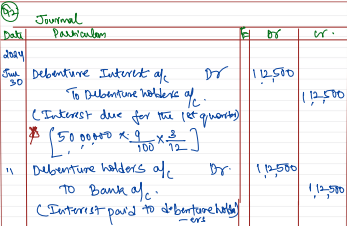 Q2
Journal
Date Particulars F Dr Cr.
2024
Jun 30 Debenture Interest a/c Dr 1,12,500
To Debenture holders a/c. 1,12,500
(Interest due for the 1st quarter)
[50,00,000 × 9/100 × 3/12]
" Debenture holders a/c Dr. 1,12,500
To Bank a/c. 1,12,500
(Interest paid to debenture holders)